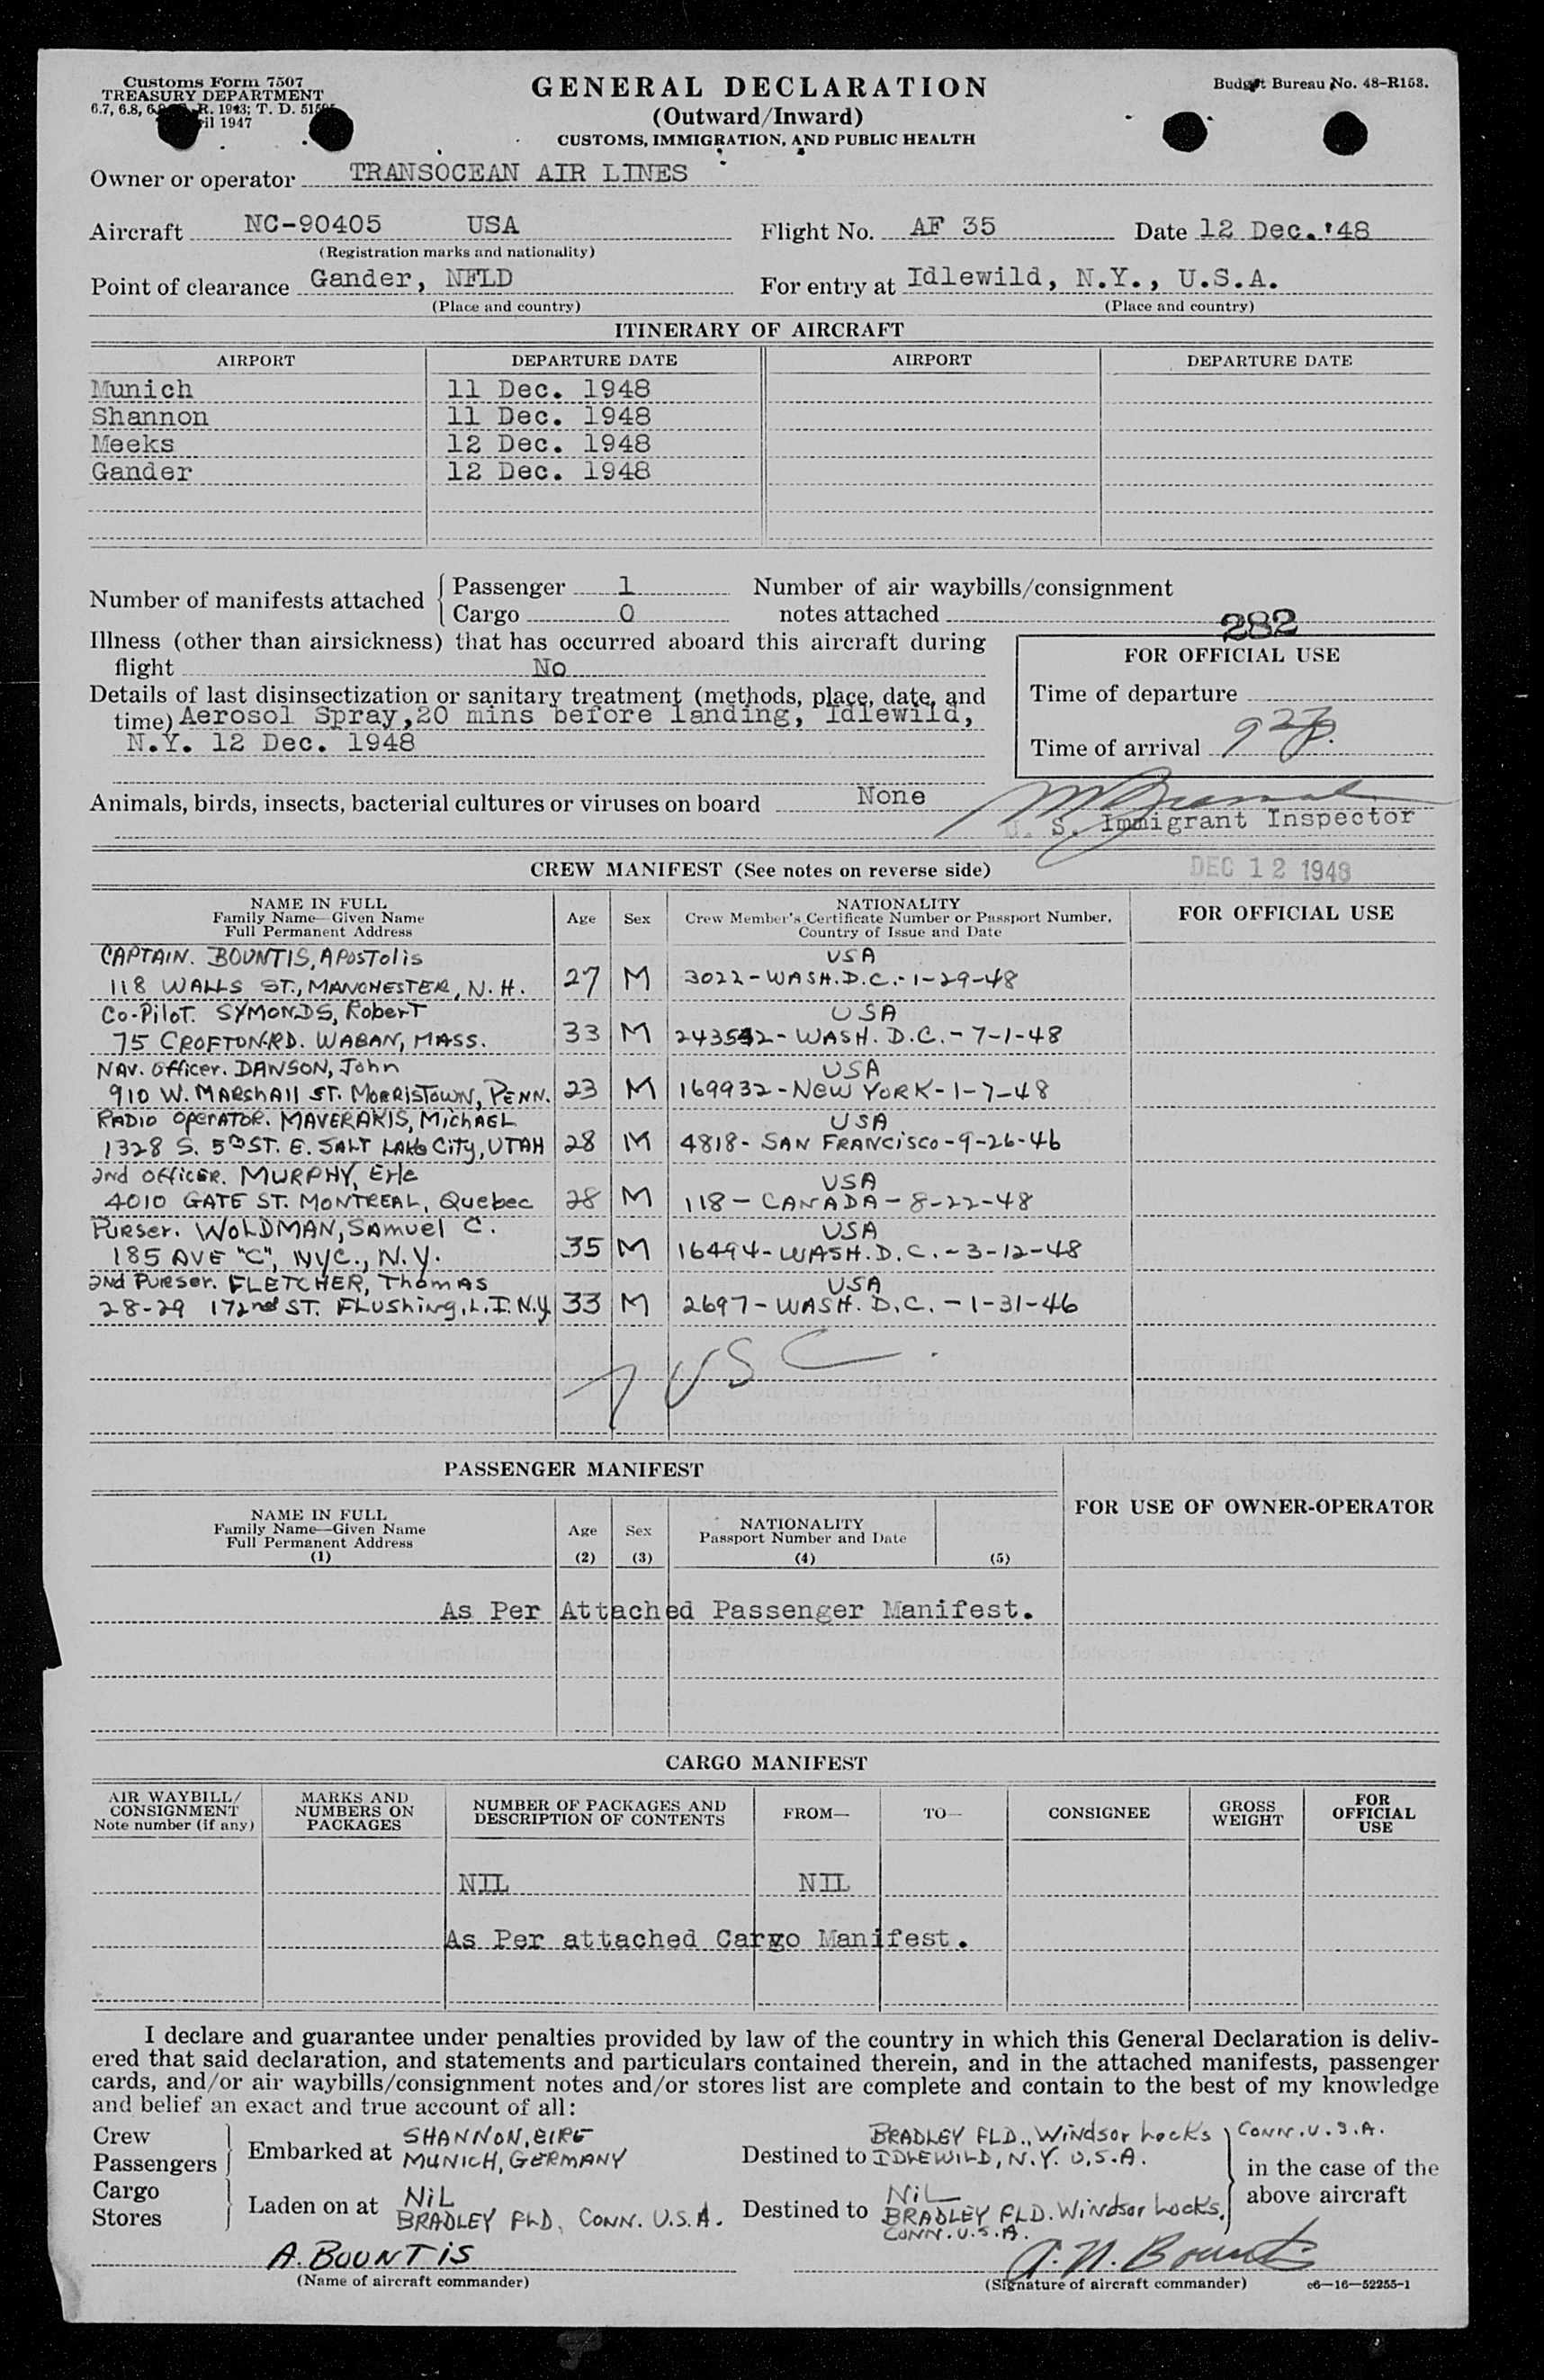 Customs Form 7507
TREASURY DEPARTMENT
6.7, 6.8, R. 1943; T. D.
1947
GENERAL DECLARATION
(Outward/Inward)
CUSTOMS, IMMIGRATION, AND PUBLIC HEALTH
Budget Bureau No. 48-R153.
Owner or operator TRANSOCEAN AIR LINES
Aircraft NC-90405 USA Flight No. AF 35 Date 12 Dec.'48
(Registration marks and nationality)
Point of clearance Gander, NFLD For entry at Idlewild, N.Y., U.S.A.
(Place and country) (Place and country)
ITINERARY OF AIRCRAFT
AIRPORT DEPARTURE DATE AIRPORT DEPARTURE DATE
Munich 11 Dec. 1948
Shannon 11 Dec. 1948
Meeks 12 Dec. 1948
Gander 12 Dec. 1948
Number of manifests attached Passenger 1 Number of air waybills/consignment
Cargo 0 notes attached
282
Illness (other than airsickness) that has occurred aboard this aircraft during
flight No
FOR OFFICIAL USE
Details of last disinsectization or sanitary treatment (methods, place, date, and
time) Aerosol Spray,20 mins before landing, Idlewild,
N.Y. 12 Dec. 1948
Time of departure
Time of arrival 927p.
Animals, birds, insects, bacterial cultures or viruses on board None
U. S. Immigrant Inspector
CREW MANIFEST (See notes on reverse side)
DEC 12 1948
NAME IN FULL
Family Name—Given Name
Full Permanent Address
Age Sex
NATIONALITY
Crew Member's Certificate Number or Passport Number,
Country of Issue and Date
FOR OFFICIAL USE
CAPTAIN. BOUNTIS, APOSTOlis USA
118 WALLS ST., MANCHESTER, N.H. 27 M 3022-WASH.D.C.-1-29-48
Co-Pilot. SYMONDS, Robert USA
75 CROFTON RD. WABAN, MASS. 33 M 243542-WASH. D.C.-7-1-48
NAV. Officer. DAWSON, John USA
910 W. MARShAll ST. MORRISTOWN, PENN. 23 M 169932-NEW YORK-1-7-48
RADIO OperATOR. MAVERAKIS, MichAEL USA
1328 S. 5th ST. E. SALT LAKe City, UTAH 28 M 4818- SAN FRANCisco-9-26-46
2nd OfficeR. MURPHY, Erle USA
4010 GATE ST. MONTREAL, Quebec 28 M 118-CANADA-8-22-48
Purser. WOLDMAN, SAmuel C. USA
185 AVE "C", NYC., N.Y. 35 M 16494-WASH. D.C.-3-12-48
2nd Purser. FLETCHER, ThomAS USA
28-29 172nd ST. FLUShing, L.I. N.Y 33 M 2697-WASH. D.C.-1-31-46
7 USC.
PASSENGER MANIFEST
NAME IN FULL
Family Name—Given Name
Full Permanent Address
(1)
Age
(2)
Sex
(3)
NATIONALITY
Passport Number and Date
(4)
(5)
FOR USE OF OWNER-OPERATOR
As Per Attached Passenger Manifest.
CARGO MANIFEST
AIR WAYBILL/
CONSIGNMENT
Note number (if any)
MARKS AND
NUMBERS ON
PACKAGES
NUMBER OF PACKAGES AND
DESCRIPTION OF CONTENTS
FROM—
TO—
CONSIGNEE
GROSS
WEIGHT
FOR
OFFICIAL
USE
NIL NIL
As Per attached Cargo Manifest.
I declare and guarantee under penalties provided by law of the country in which this General Declaration is deliv-
ered that said declaration, and statements and particulars contained therein, and in the attached manifests, passenger
cards, and/or air waybills/consignment notes and/or stores list are complete and contain to the best of my knowledge
and belief an exact and true account of all:
Crew SHANNON, EIRE BRADLEY FLD., Windsor Locks CONN. U.S.A.
Passengers Embarked at MUNICH, GERMANY Destined to IDLEWILD, N.Y. U.S.A. in the case of the
Cargo NiL NiL above aircraft
Stores Laden on at BRADLEY FLD, CONN. U.S.A. Destined to BRADLEY FLD. Windsor Locks.
CONN. U.S.A.
A. BOUNTiS A. N. Bountis
(Name of aircraft commander) (Signature of aircraft commander) c6—16—52255-1